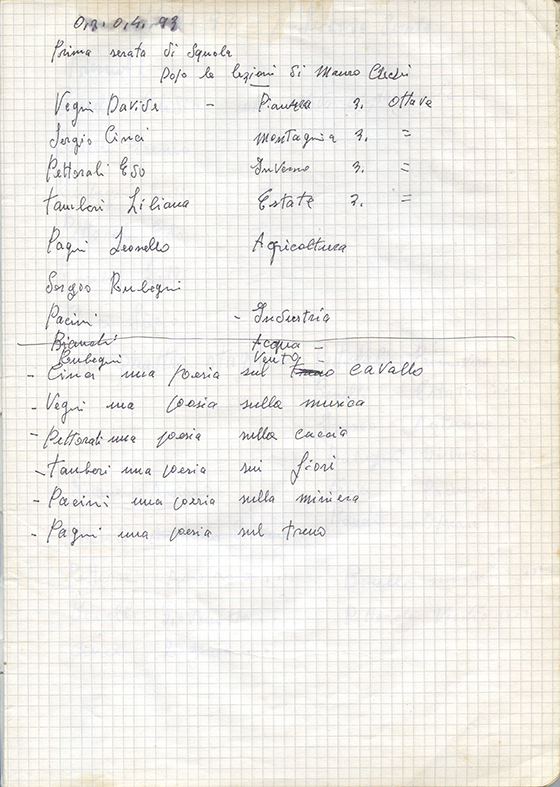 0,3. 0,4. 93
Prima serata di Squola
Dopo le lezioni di Mauro Chechi
Vegni Davide - Pianura 3. Ottave
Sergio Cinci Montagnia 3. =
Pettorali Eso Inverno 3. =
Tamberi Liliana Estate 3. =
Pagni Leonello Agricoltura
Sergio Rubegni
Pacini - Industria
Bianchi Acqua -
Rubegni Vento -
- Cinci una poesia sul treno cavallo
- Vegni una poesia sulla musica
- Pettorali una poesia sulla caccia
- Tamberi una poesia sui fiori
- Pacini una poesia sulla miniera
- Pagni una poesia sul treno